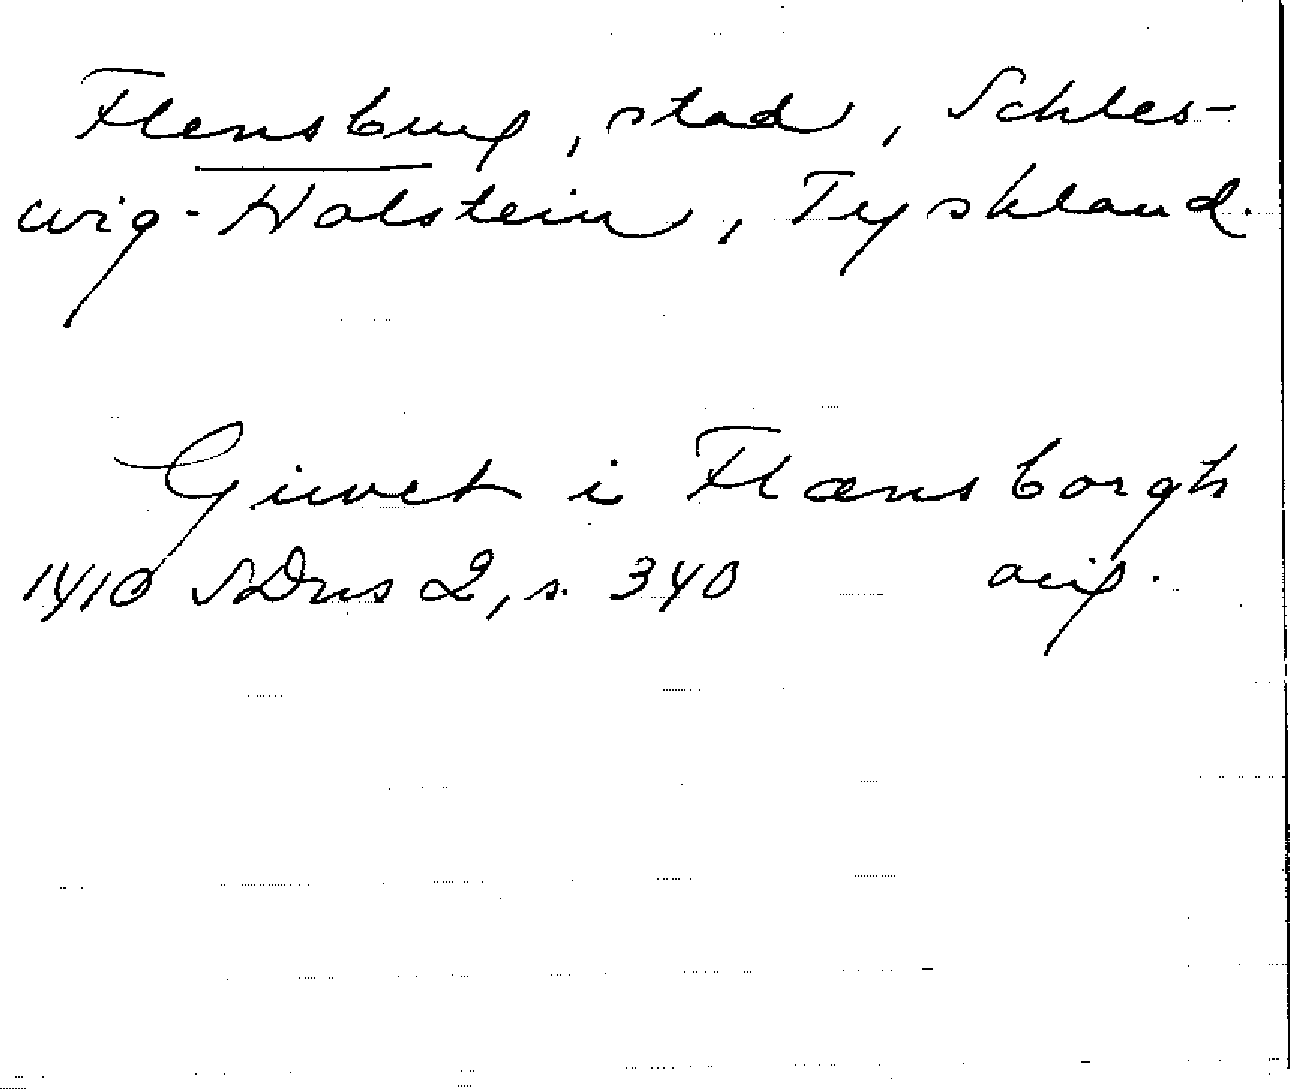 Flensburg, stad, Schles-
wig-Holstein, Tyskland.
Giwet i Flænsborgh
1410 SDns 2, s. 340 avs.